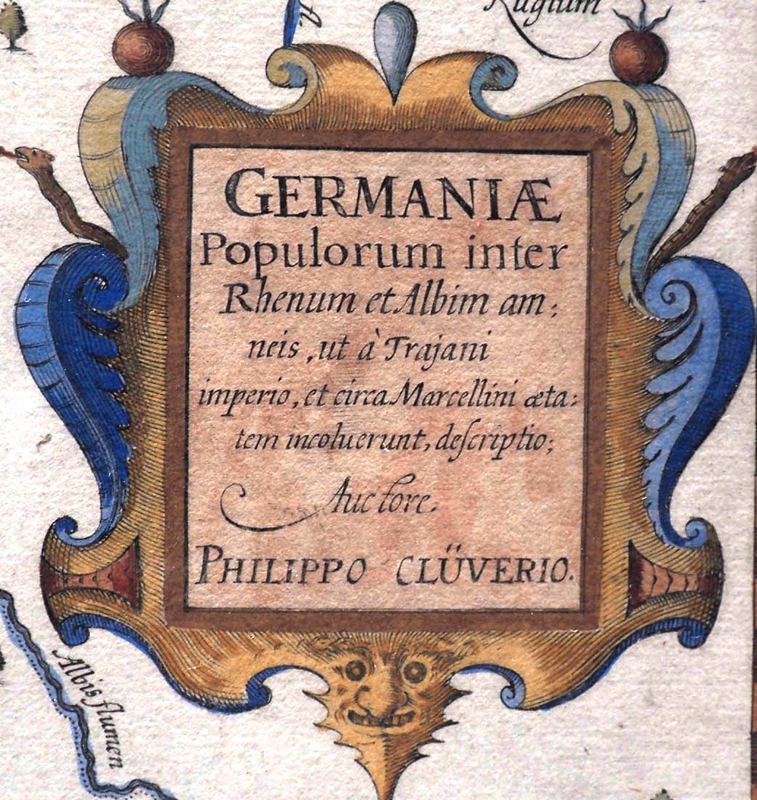 Rugium
GERMANIÆ
Populorum inter
Rhenum et Albim am:
neis, ut à Trajani
imperio, et circa Marcellini æta:
tem incoluerunt, deſcriptio;
Auctore.
PHILIPPO CLÜVERIO.
Albis flumen